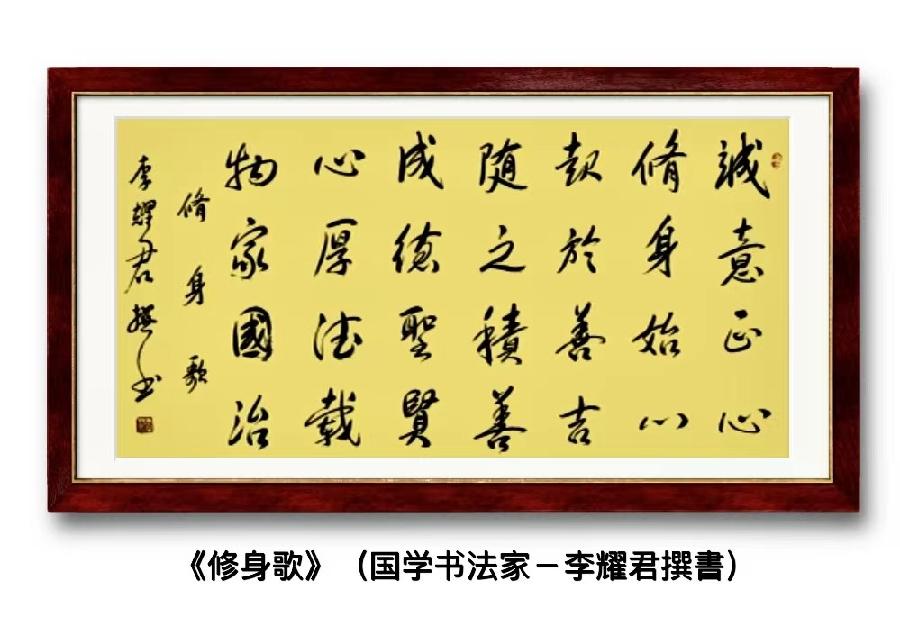 誠意正心
脩身始心
起於善吉
随之積善
成德聖賢
心厚德載
物家國治
脩身歌
李耀君撰书
《修身歌》（国学书法家－李耀君撰書）